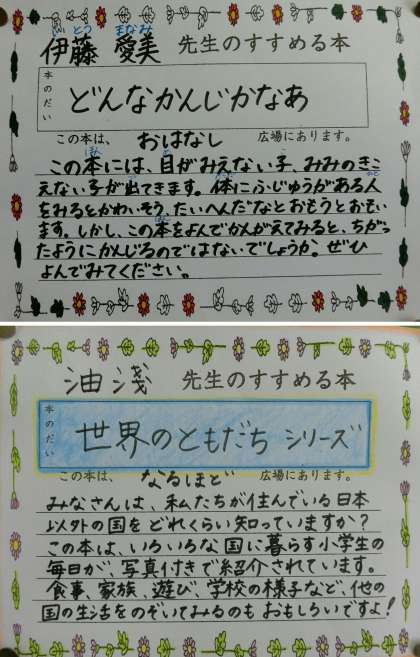 いとう まなみ
伊藤 愛美 先生のすすめる本
本のだい
どんなかんじかなあ
この本は、 おはなし 広場にあります。
この本には、目がみえない子、みみのきこ
えない子が出てきます。体にふじゆうがある人
をみるとかわいそう、たいへんだなとおもうとおもい
ます。しかし、この本をよんでかんがえてみると、ちがっ
たようにかんじるのではないでしょうか。ぜひ
よんでみてください。
油淺 先生のすすめる本
本のだい
世界のともだち シリーズ
この本は、 なるほど 広場にあります。
みなさんは、私たちが住んでいる日本
以外の国をどれくらい知っていますか?
この本は、いろいろな国に暮らす小学生の
毎日が、写真付きで紹介されています。
食事、家族、遊び、学校の様子など、他の
国の生活をのぞいてみるのもおもしろいですよ!